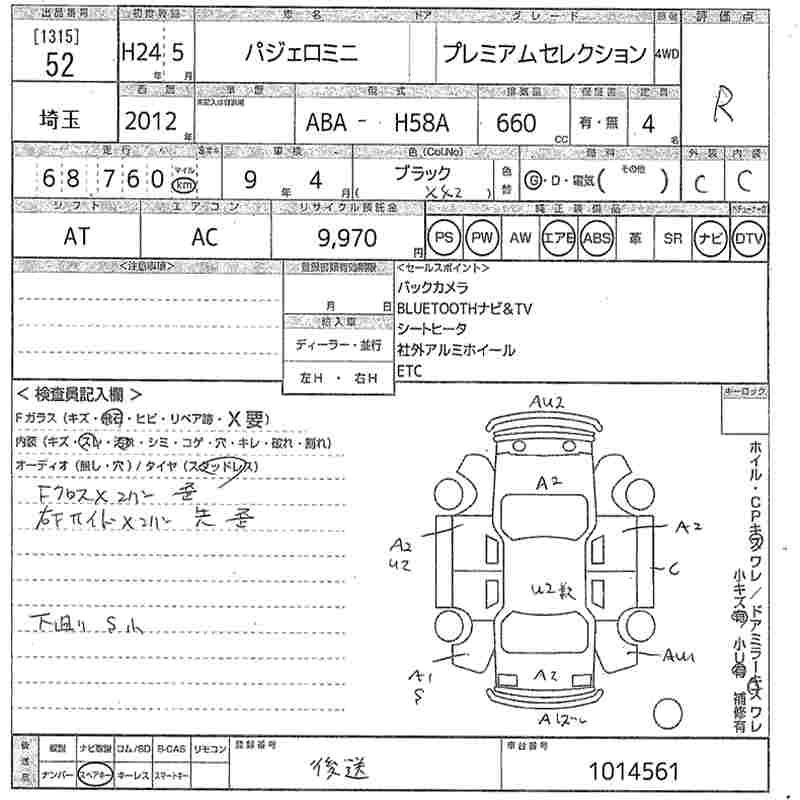 出品番号 初度登録 車名 ドア グレード 駆動 評価点
[1315]
52
H24 5 年 月
パジェロミニ
プレミアムセレクション
4WD
R
埼玉
西暦 車歴 型式 排気量 保証書 定員
2012 年
未記入は自家用
ABA - H58A
660 CC
有・無
4 名
走行 車検 色(Col.No) 燃料 外装 内装
68,760 マイル km
9 年 4 月
ブラック
( X42 )
色替
G・D・電気( その他 )
C C
シフト エアコン リサイクル預託金 純正装備品
AT AC 9,970 円
PS PW AW エアB ABS 革 SR ナビ DTV
<注意事項> 登録書類有効期限 <セールスポイント>
月 日
輸入車
ディーラー・並行
左H ・ 右H
バックカメラ
BLUETOOTHナビ&TV
シートヒータ
社外アルミホイール
ETC
キーロック
< 検査員記入欄 >
Fガラス(キズ・飛石・ヒビ・リペア跡・X要)
内装(キズ・スレ・汚れ・シミ・コゲ・穴・キレ・破れ・割れ)
オーディオ(無し・穴)/タイヤ(スタッドレス)
FクロスXコアパー 歪
右FサイドXコアパー 先 歪
下回り S小
AU2
A2
A2
U2
A2
C
U2数
A1
S
A2
AU1
ホイル・CPキズワレ/ドアミラーキズワレ
小キズ有/小U有 補修有
後送品 取説 ナビ取説 ロム/SD B-CAS リモコン 登録番号 車台番号
ナンバー スペアキー キーレス スマートキー
後送
1014561